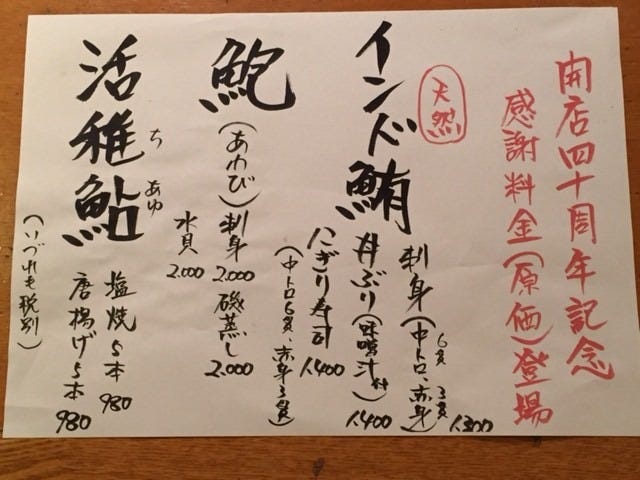 開店四十周年記念
感謝料金(原価)登場
天然
インド鮪
刺身(中トロ6貫、赤身3貫) 1.300
丼ぶり(味噌汁付) 1.400
にぎり寿司 1.400
(中トロ6貫、赤身3貫)
鮑(あわび)
刺身 2.000
磯蒸し 2.000
水貝 2.000
活稚鮎
ちあゆ
塩焼5本 980
唐揚げ5本 980
(いづれも税別)